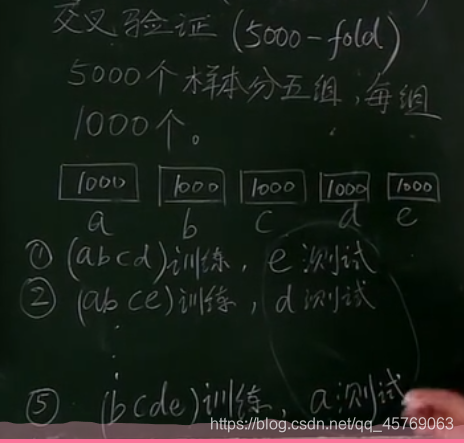 交叉验证 (5000-fold)
5000个样本分五组,每组
1000个。
1000 1000 1000 1000 1000
a b c d e
① (abcd)训练, e测试
② (abce)训练, d测试
⋮
⑤ (bcde)训练, a测试
https://blog.csdn.net/qq_45769063